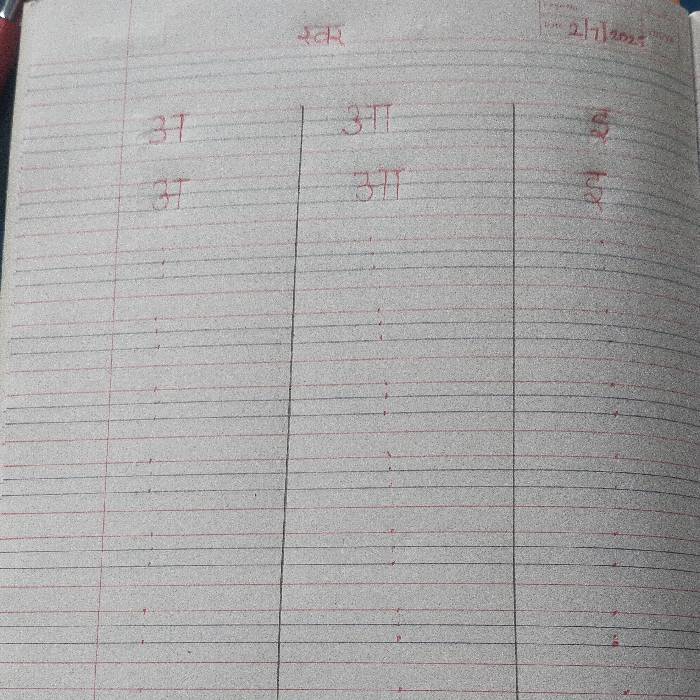 2/7/2025
स्वर
अ आ इ
अ आ इ